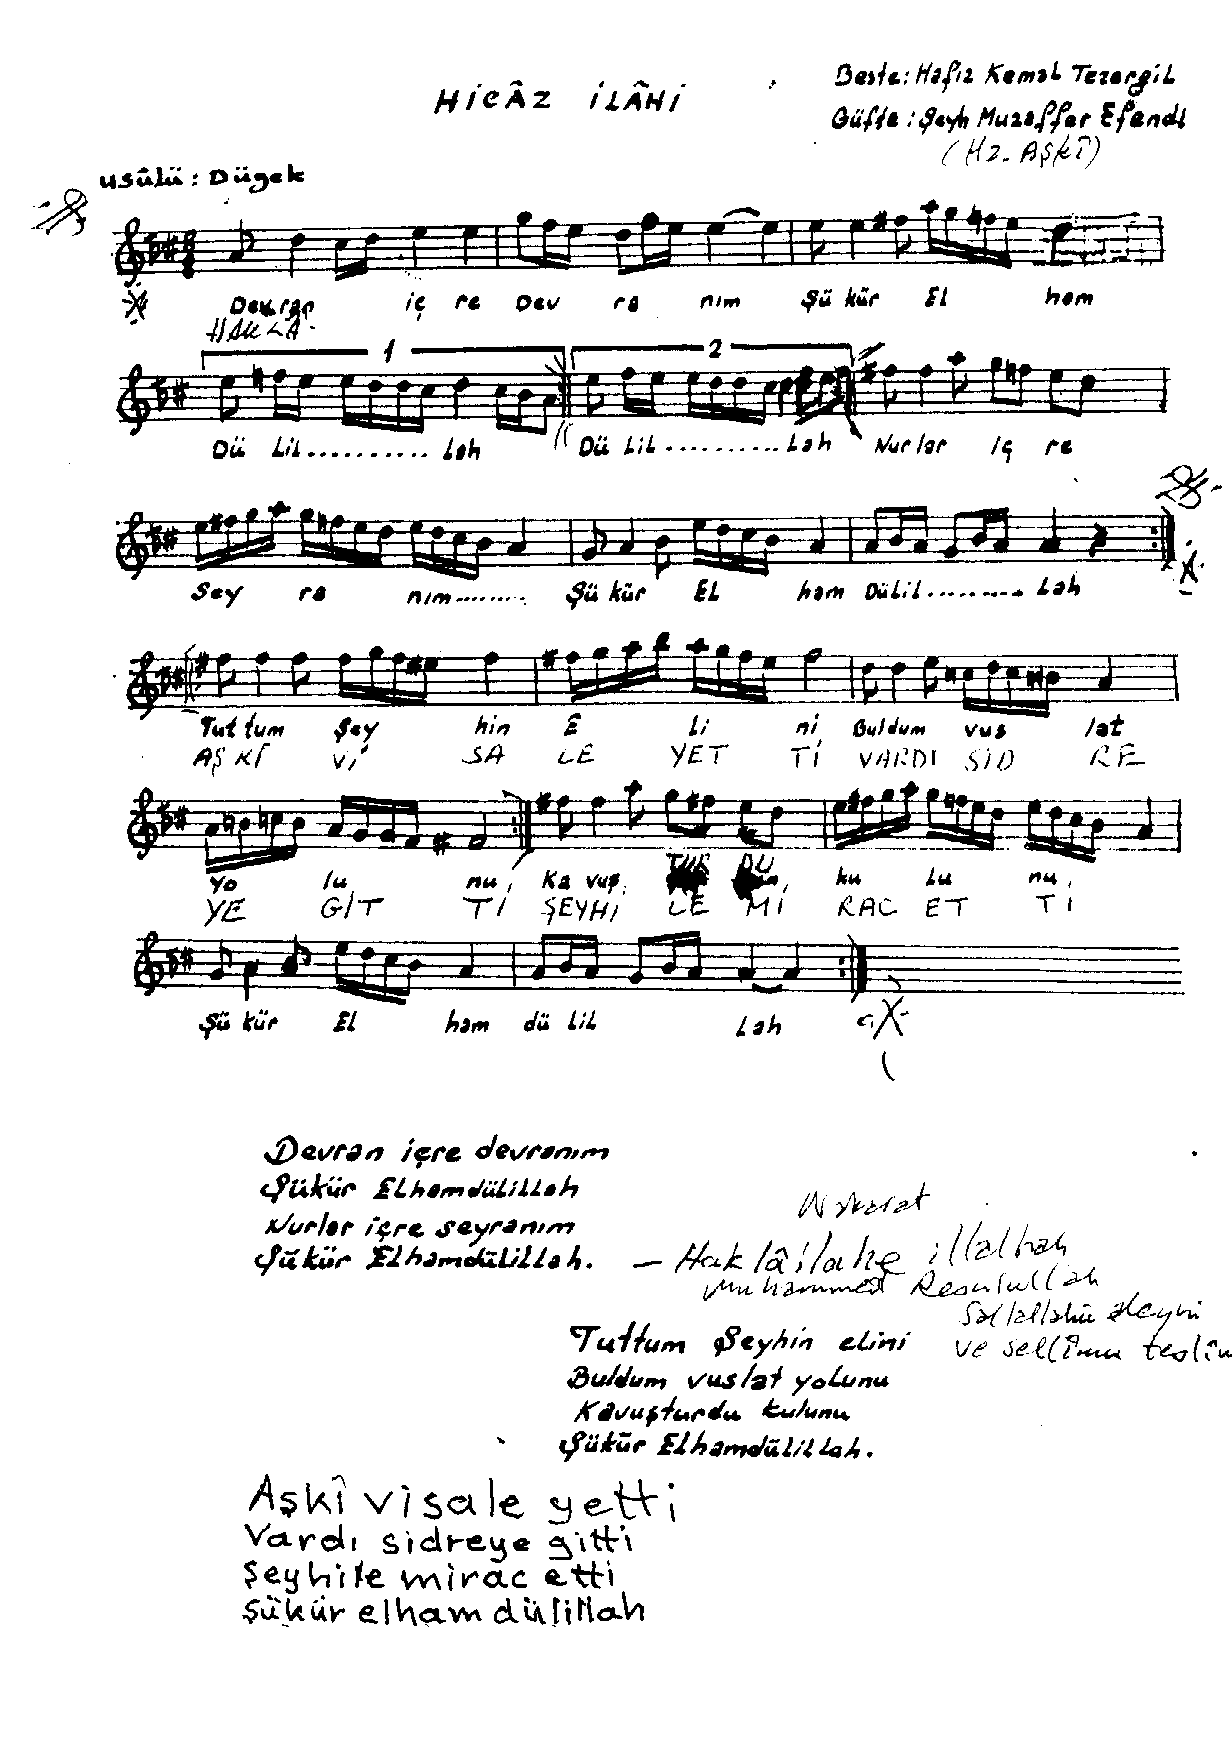 HİCÂZ İLÂHİ
Beste: Hafız Kemal Tezergil
Güfte: Şeyh Muzaffer Efendi
(Hz. AŞKÎ)
usûlü: Düyek
Devran iç re Dev ra nım Şü kür El ham
HAK LÂ
1 2
Dü Lil.......... Lah Dü Lil.......... Lah Nurlar iç re
Sey ra nım........ Şü kür EL ham Dülil......... Lah
Tut tum Şey hin E li ni Buldum vus lat
AŞ KÎ Vİ SA LE YET Tİ VARDI SİD RE
Yo lu nu, Ka vuş, TUR DU ku Lu nu,
YE GİT Tİ ŞEYHİ LE Mİ RAC ET Tİ
Şü kür El ham dü LiL Lah
Devran içre devranım
Şükür Elhamdülillah
Nurlar içre seyranım
Şükür Elhamdülillah.
Nakarat
— Hak lâilahe illallah
Muhammed Resulullah
Sallallahü aleyhi
ve sellimu teslîm
Tuttum Şeyhin elini
Buldum vuslat yolunu
Kavuşturdu kulunu
Şükür Elhamdülillah.
Aşkî visale yetti
Vardı sidreye gitti
Şeyhile mirac etti
Şükür elhamdülillah